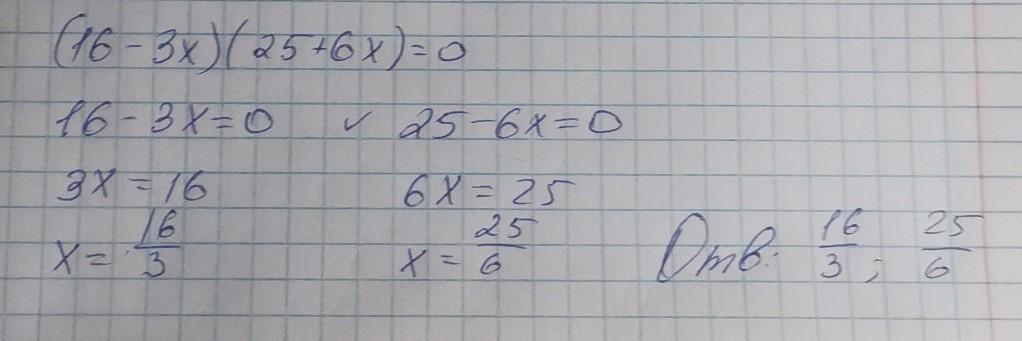 (16-3x)(25+6x)=0
16-3x=0 ∨ 25-6x=0
3x=16 6x=25
x=16/3 x=25/6 Отв: 16/3; 25/6